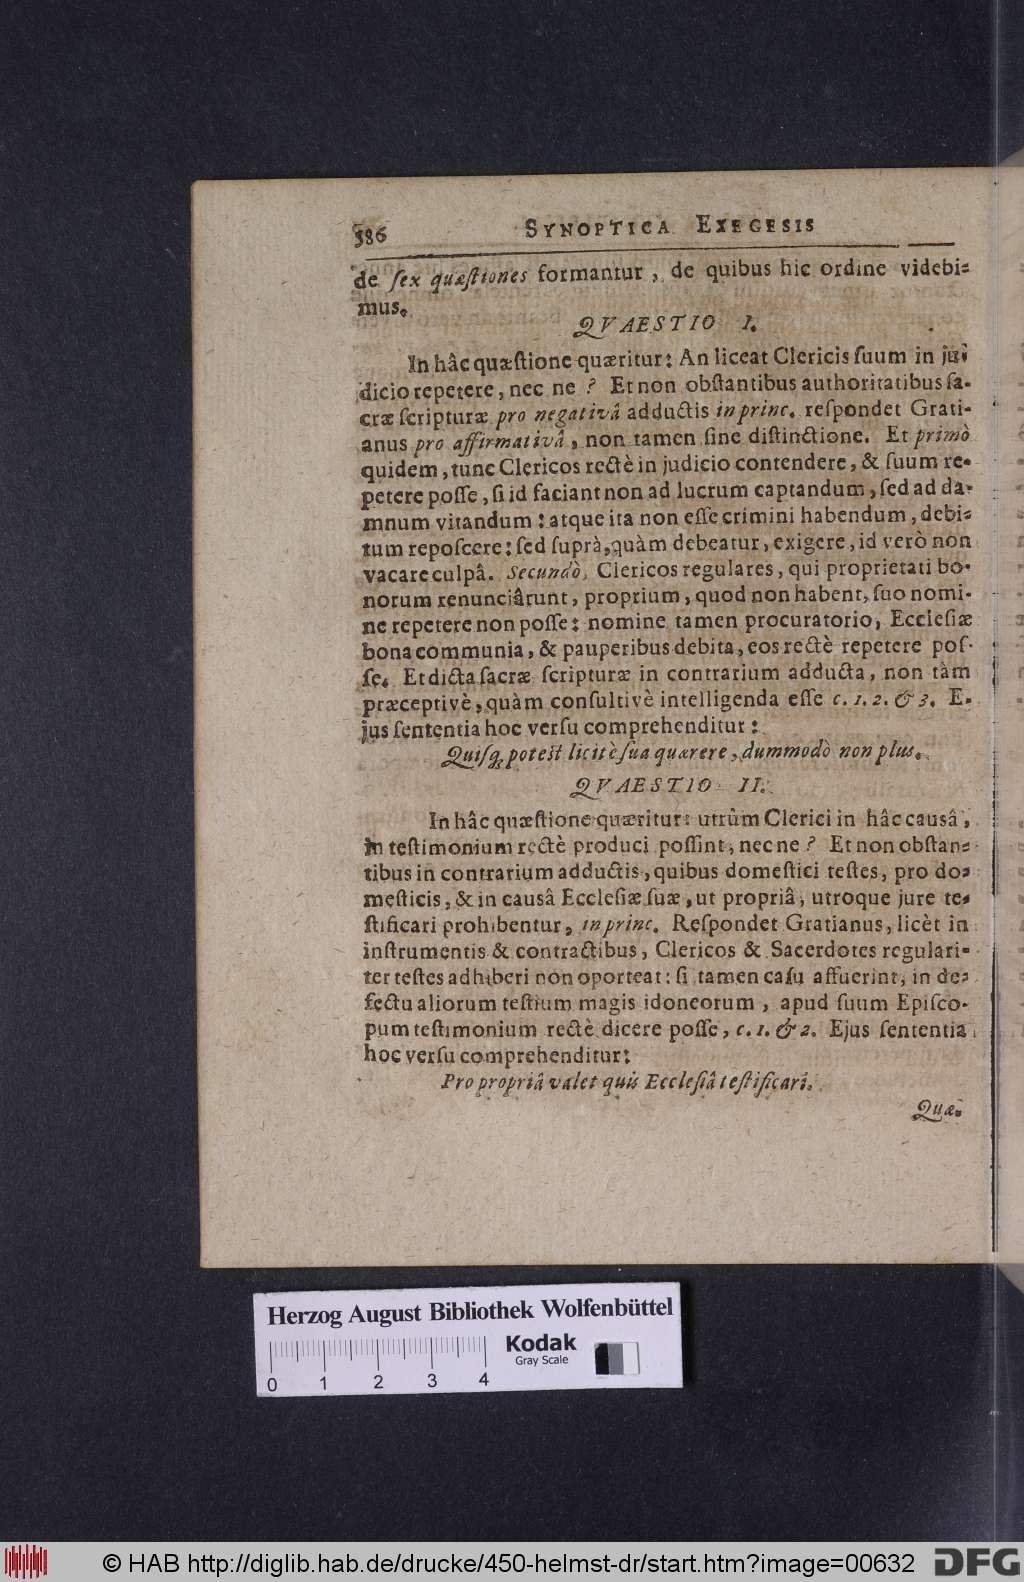 386 SYNOPTICA EXEGESIS
de ſex quæſtiones formantur, de quibus hic ordine videbi-
mus.
QVAESTIO I.
In hâc quæſtione quæritur: An liceat Clericis ſuum in ju-
dicio repetere, nec ne? Et non obſtantibus authoritatibus ſa-
cræ ſcripturæ pro negativâ adductis in princ. reſpondet Grati-
anus pro affirmativâ, non tamen ſine diſtinctione. Et primò
quidem, tunc Clericos rectè in judicio contendere, & ſuum re-
petere poſſe, ſi id faciant non ad lucrum captandum, ſed ad da-
mnum vitandum: atque ita non eſſe crimini habendum, debi-
tum repoſcere: ſed ſuprà, quàm debeatur, exigere, id verò non
vacare culpâ. Secundò, Clericos regulares, qui proprietati bo-
norum renunciârunt, proprium, quod non habent, ſuo nomi-
ne repetere non poſſe: nomine tamen procuratorio, Eccleſiæ
bona communia, & pauperibus debita, eos rectè repetere poſ-
ſe. Et dicta ſacræ ſcripturæ in contrarium adducta, non tàm
præceptivè, quàm conſultivè intelligenda eſſe c. 1. 2. & 3. E-
jus ſententia hoc verſu comprehenditur:
Quiſq; poteſt licitè ſua quærere, dummodò non plus.
QVAESTIO II.
In hâc quæſtione quæritur: utrùm Clerici in hâc causâ,
in teſtimonium rectè produci poſſint, nec ne? Et non obſtan-
tibus in contrarium adductis, quibus domeſtici teſtes, pro do-
meſticis, & in causâ Eccleſiæ ſuæ, ut propriâ, utroque jure te-
ſtificari prohibentur, in princ. Reſpondet Gratianus, licèt in
inſtrumentis & contractibus, Clericos & Sacerdotes regulari-
ter teſtes adhiberi non oporteat: ſi tamen caſu affuerint, in de-
fectu aliorum teſtium magis idoneorum, apud ſuum Epiſco-
pum teſtimonium rectè dicere poſſe, c. 1. & 2. Ejus ſententia
hoc verſu comprehenditur:
Pro propriâ valet quis Eccleſiâ teſtificari.
Quæ-
Herzog August Bibliothek Wolfenbüttel
Kodak
Gray Scale
0 1 2 3 4
© HAB http://diglib.hab.de/drucke/450-helmst-dr/start.htm?image=00632 DFG